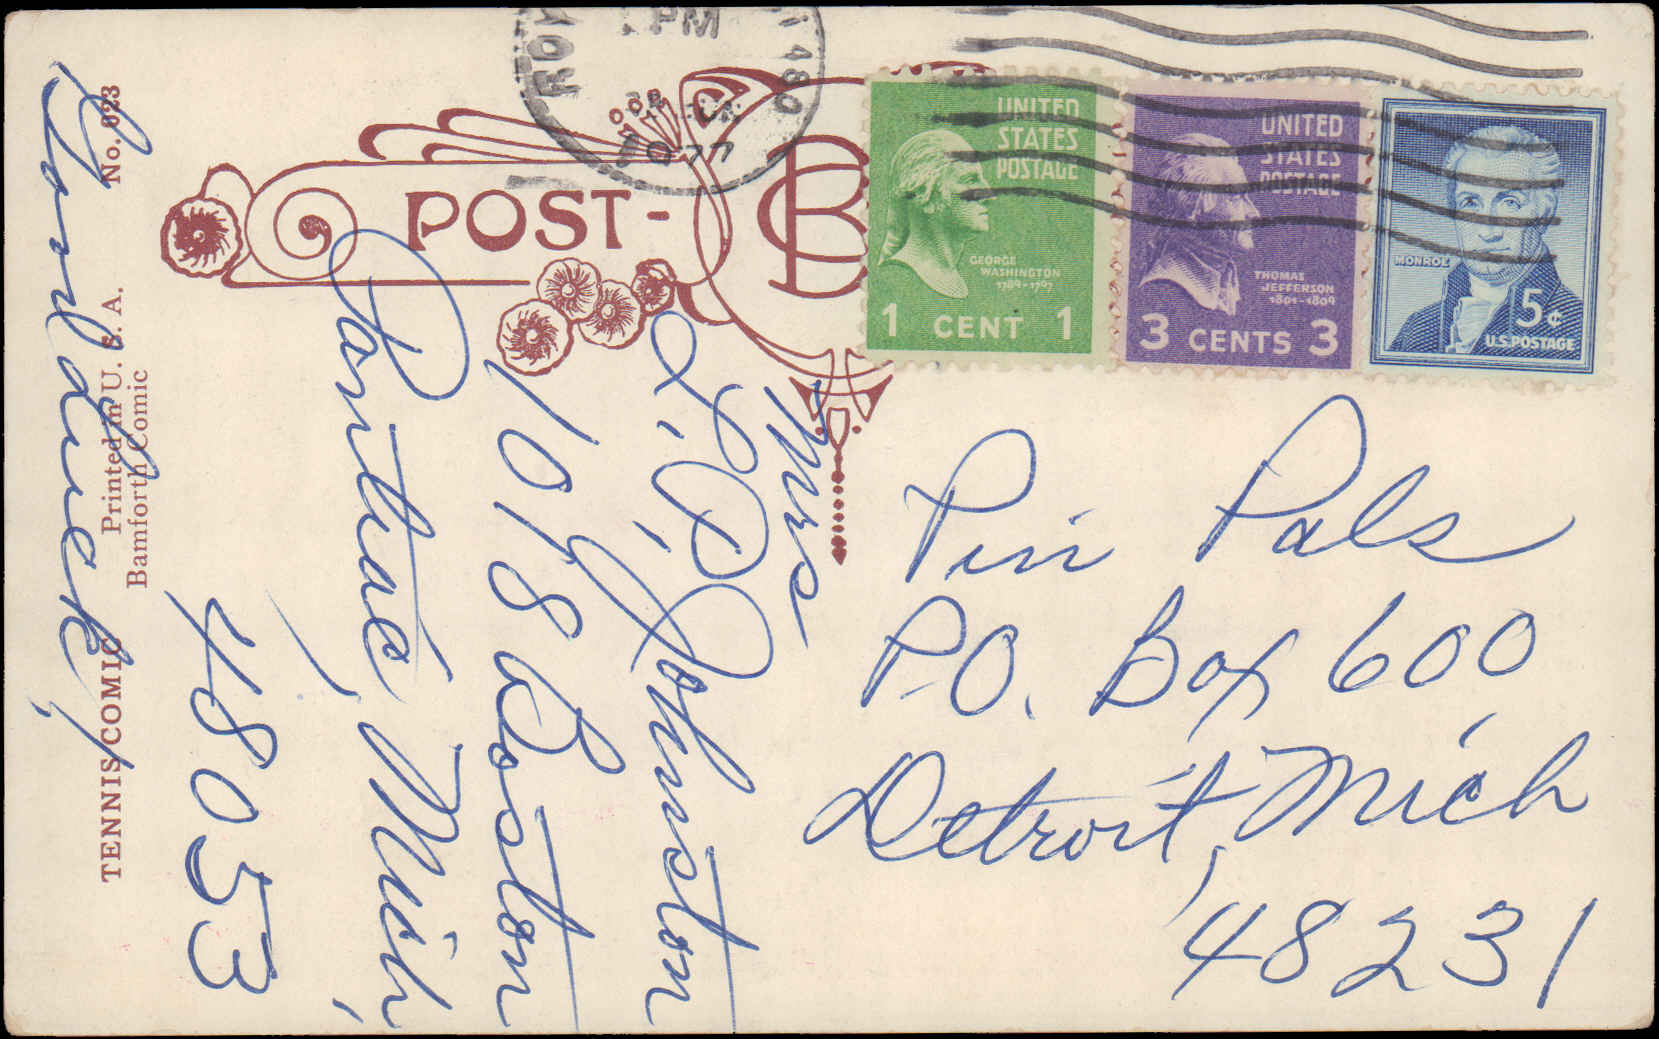 PM
480
1977
POST-
UNITED
STATES
POSTAGE
GEORGE
WASHINGTON
1789-1797
1 CENT 1
UNITED
STATES
POSTAGE
THOMAS
JEFFERSON
1801-1809
3 CENTS 3
MONROE
5¢
U.S. POSTAGE
Pin Pals
P.O. Box 600
Detroit, Mich
48231
Mrs
L. P. Johnston
1018 Boston
Pontiac, Mich,
48053
Good luck,
No. 023
Printed in U. S. A.
Bamforth Comic
TENNIS COMIC